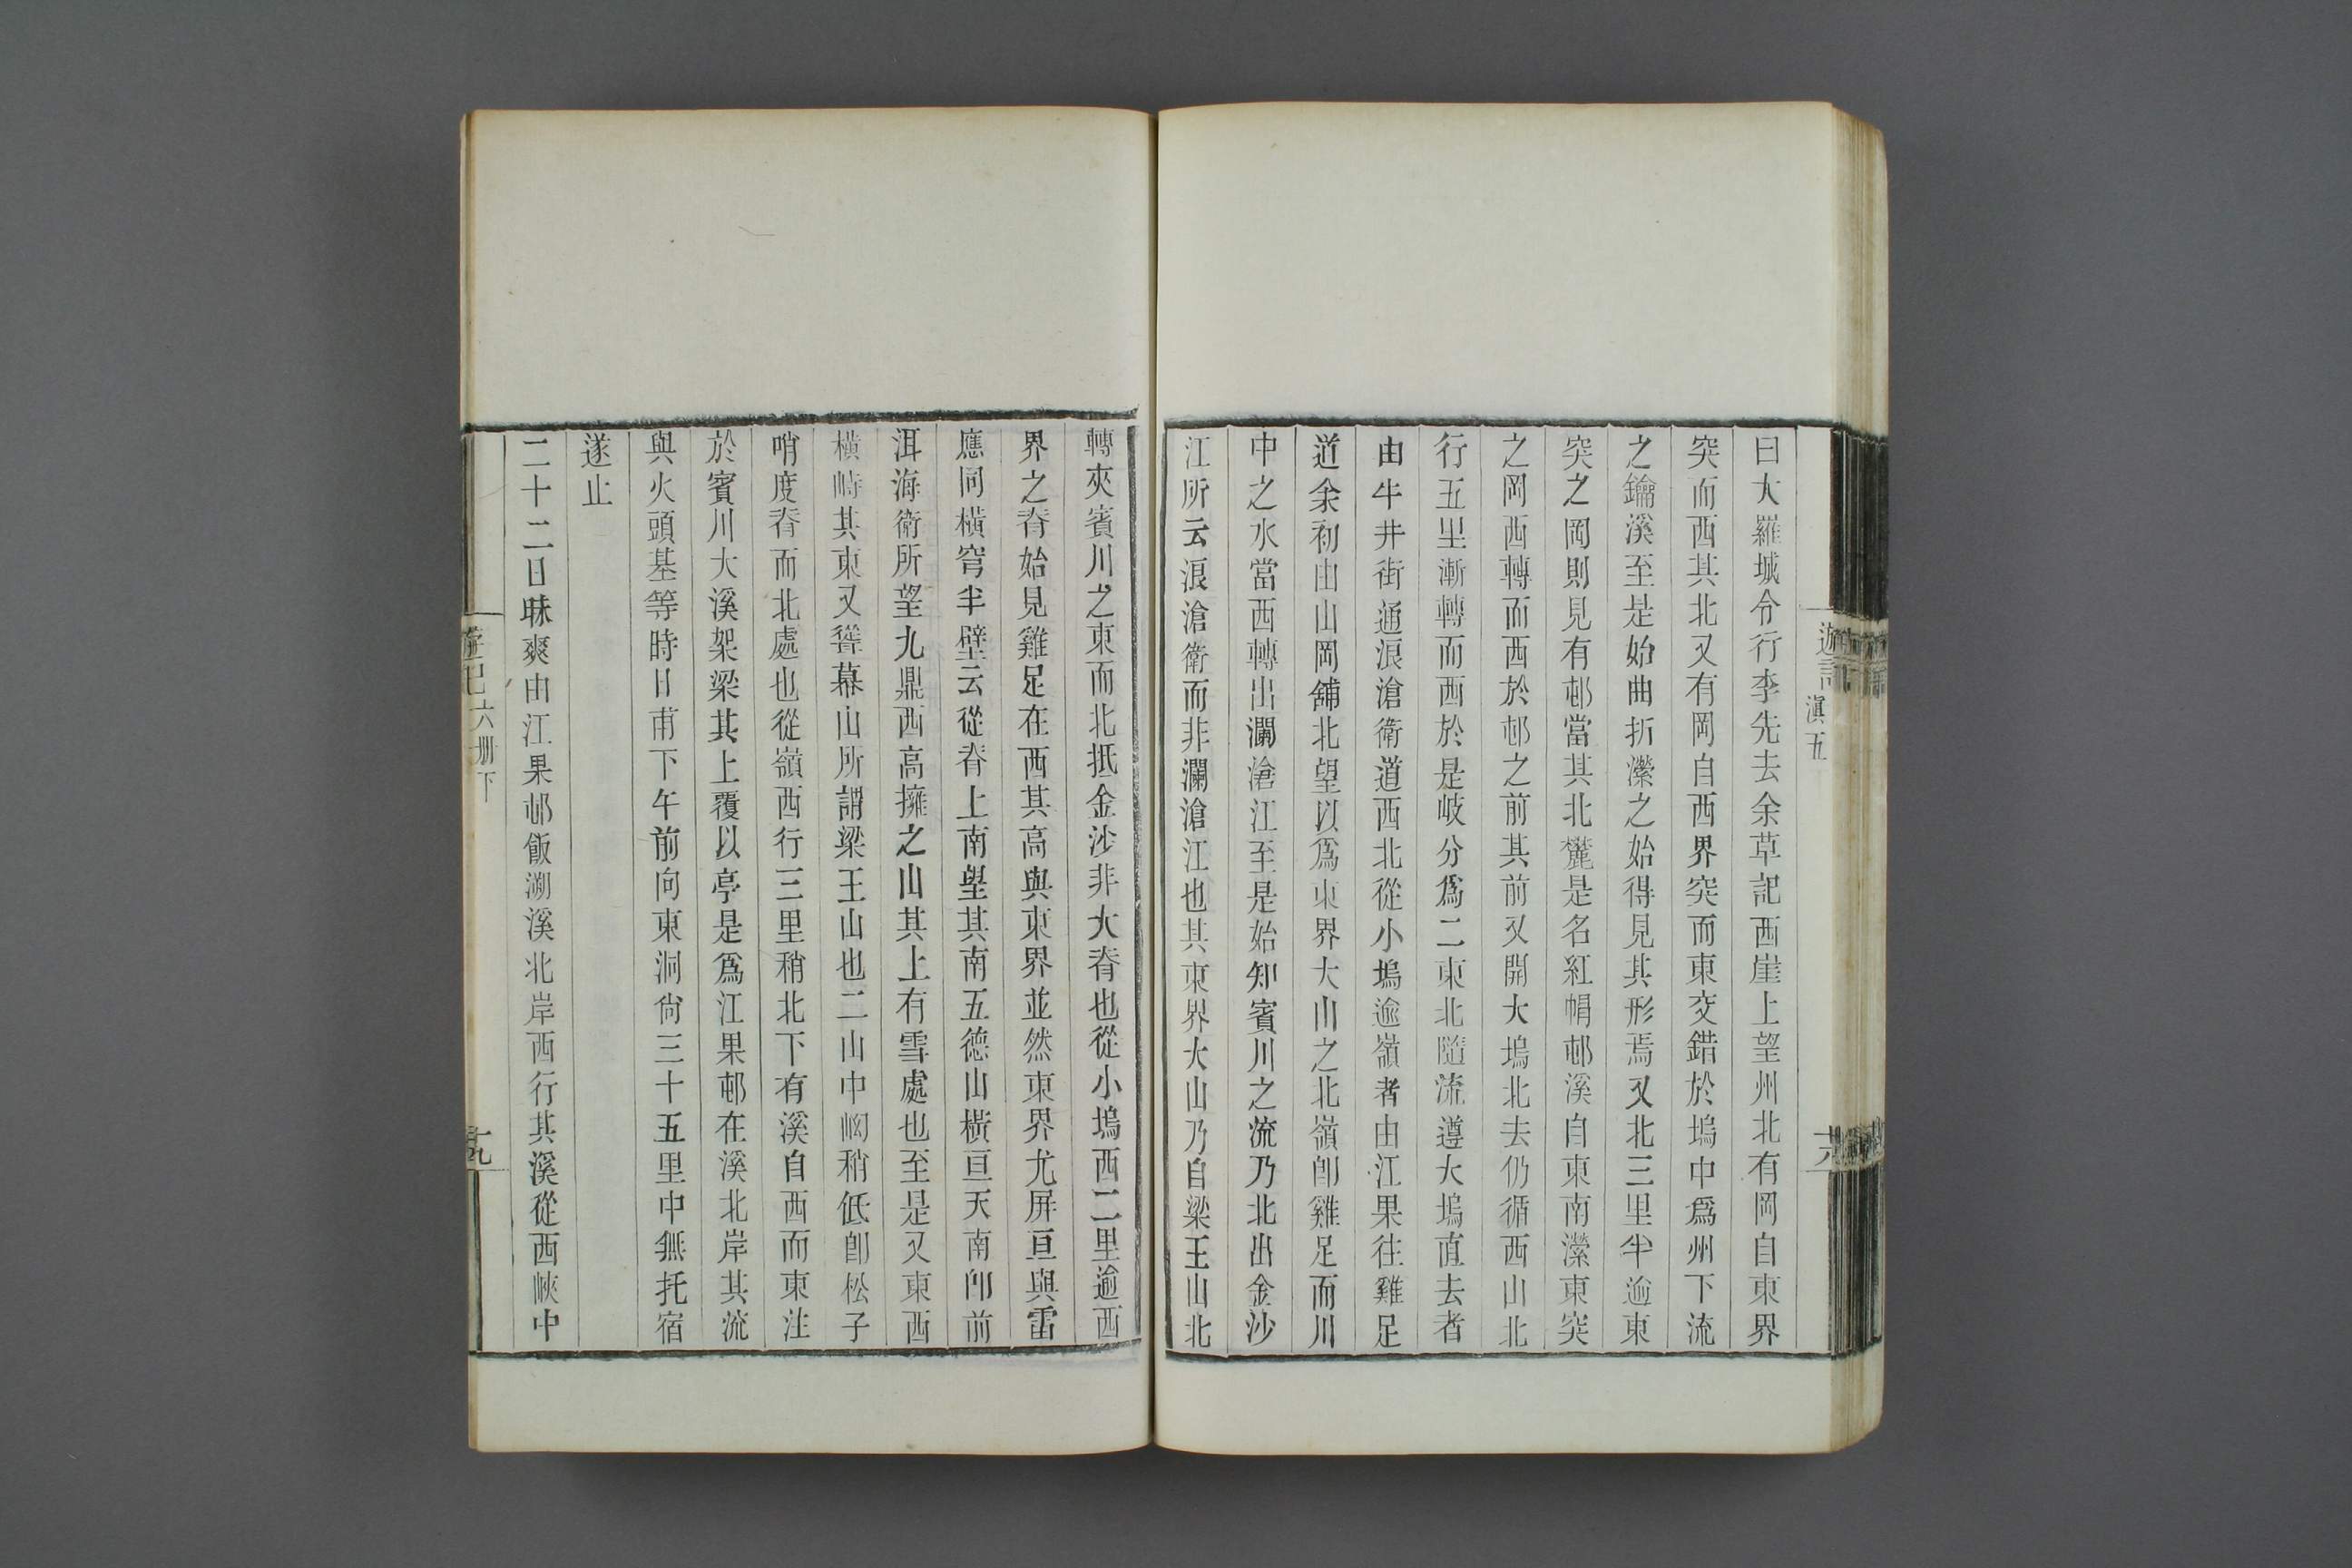 遊記
滇五
十八
曰大羅城令行李先去余草記西崖上望州北有岡自東界
突而西其北又有岡自西界突而東交錯於塢中爲州下流
之鑰溪至是始曲折瀠之始得見其形焉又北三里半逾東
突之岡則見有邨當其北麓是名紅帽邨溪自東南瀠東突
之岡西轉而西於邨之前其前又開大塢北去仍循西山北
行五里漸轉而西於是岐分爲二東北隨流遵大塢直去者
由牛井街通浪滄衛道西北從小塢逾嶺者由江果往雞足
道余初由山岡舖北望以爲東界大山之北嶺卽雞足而川
中之水當西轉出瀾滄江至是始知賓川之流乃北出金沙
江所云浪滄衛而非瀾滄江也其東界大山乃自梁王山北
轉夾賓川之東而北抵金沙非大脊也從小塢西二里逾西
界之脊始見雞足在西其高與東界並然東界尤屏亘與雷
應同橫穹半壁云從脊上南望其南五德山橫亘天南卽前
洱海衛所望九鼎西高擁之山其上有雪處也至是又東西
橫峙其東又聳幕山所謂梁王山也二山中峽稍低卽松子
哨度脊而北處也從嶺西行三里稍北下有溪自西而東注
於賓川大溪架梁其上覆以亭是爲江果邨在溪北岸其流
與火頭基等時日甫下午前向東洞尙三十五里中無托宿
遂止
二十二日昧爽由江果邨飯溯溪北岸西行其溪從西峽中
遊記
六册下
十九